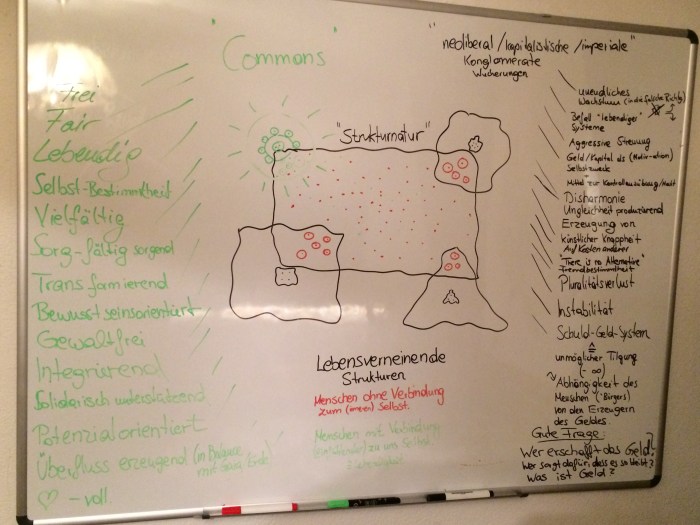 "Commons"
Frei
Fair
Lebendig
Selbst-Bestimmtheit
Vielfältig
Sorg-fältig sorgend
Transformierend
Bewusstseinsorientiert
Gewaltfrei
Integrierend
Solidarisch unterstützend
Potenzialorientiert
Überfluss erzeugend (in Balance
mit Erde)
♡ - voll
"Strukturnatur"
Lebensverneinende
Strukturen
Menschen ohne Verbindung
zum (inneren) Selbst.
Menschen mit Verbindung
zu Selbst
"neoliberal/kapitalistische/imperiale"
Konglomerate
Wucherungen
unendliches
Wachstum (in die falsche Richtg)
Befall "lebendiger"
Systeme
Aggressive Streuung
Geld/Kapital als (Motiv-ation)
Selbstzweck
+ Mittel zur Kontrollausübung/Macht
Disharmonie
Ungleichheit produzierend
Erzeugung von
künstlicher Knappheit
Auf Kosten anderer
"There is no Alternative"
Fremdbestimmtheit
Pluralitätsverlust
Instabilität
Schuld-Geld-System
≙
unmöglicher Tilgung
(-∞)
~> Abhängigkeit des
Menschen (-Bürgers)
von den Erzeugern
des Geldes
Gute Frage:
Wer erschafft das Geld?
Wer sagt dafür, dass es so bleibt?
Was ist Geld?